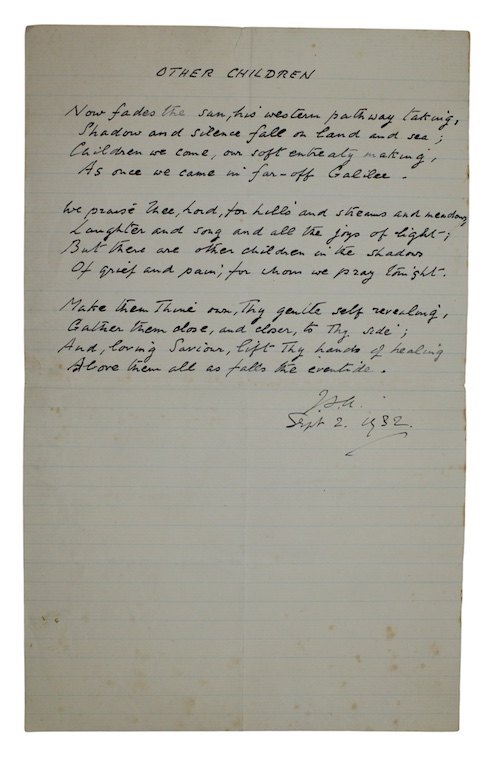 OTHER CHILDREN
Now fades the sun, his western pathway taking,
Shadow and silence fall on land and sea;
Children we come, our soft entreaty making,
As once we came in far-off Galilee.
We praise Thee, Lord, for hills and streams and meadows
Laughter and song and all the joys of light;
But there are other children in the shadows
Of grief and pain; for whom we pray tonight.
Make them Thine own, Thy gentle self revealing,
Gather them close, and closer, to Thy side;
And, loving Saviour, lift Thy hands of healing
Above them all as falls the eventide.
Sept 2. 1932.